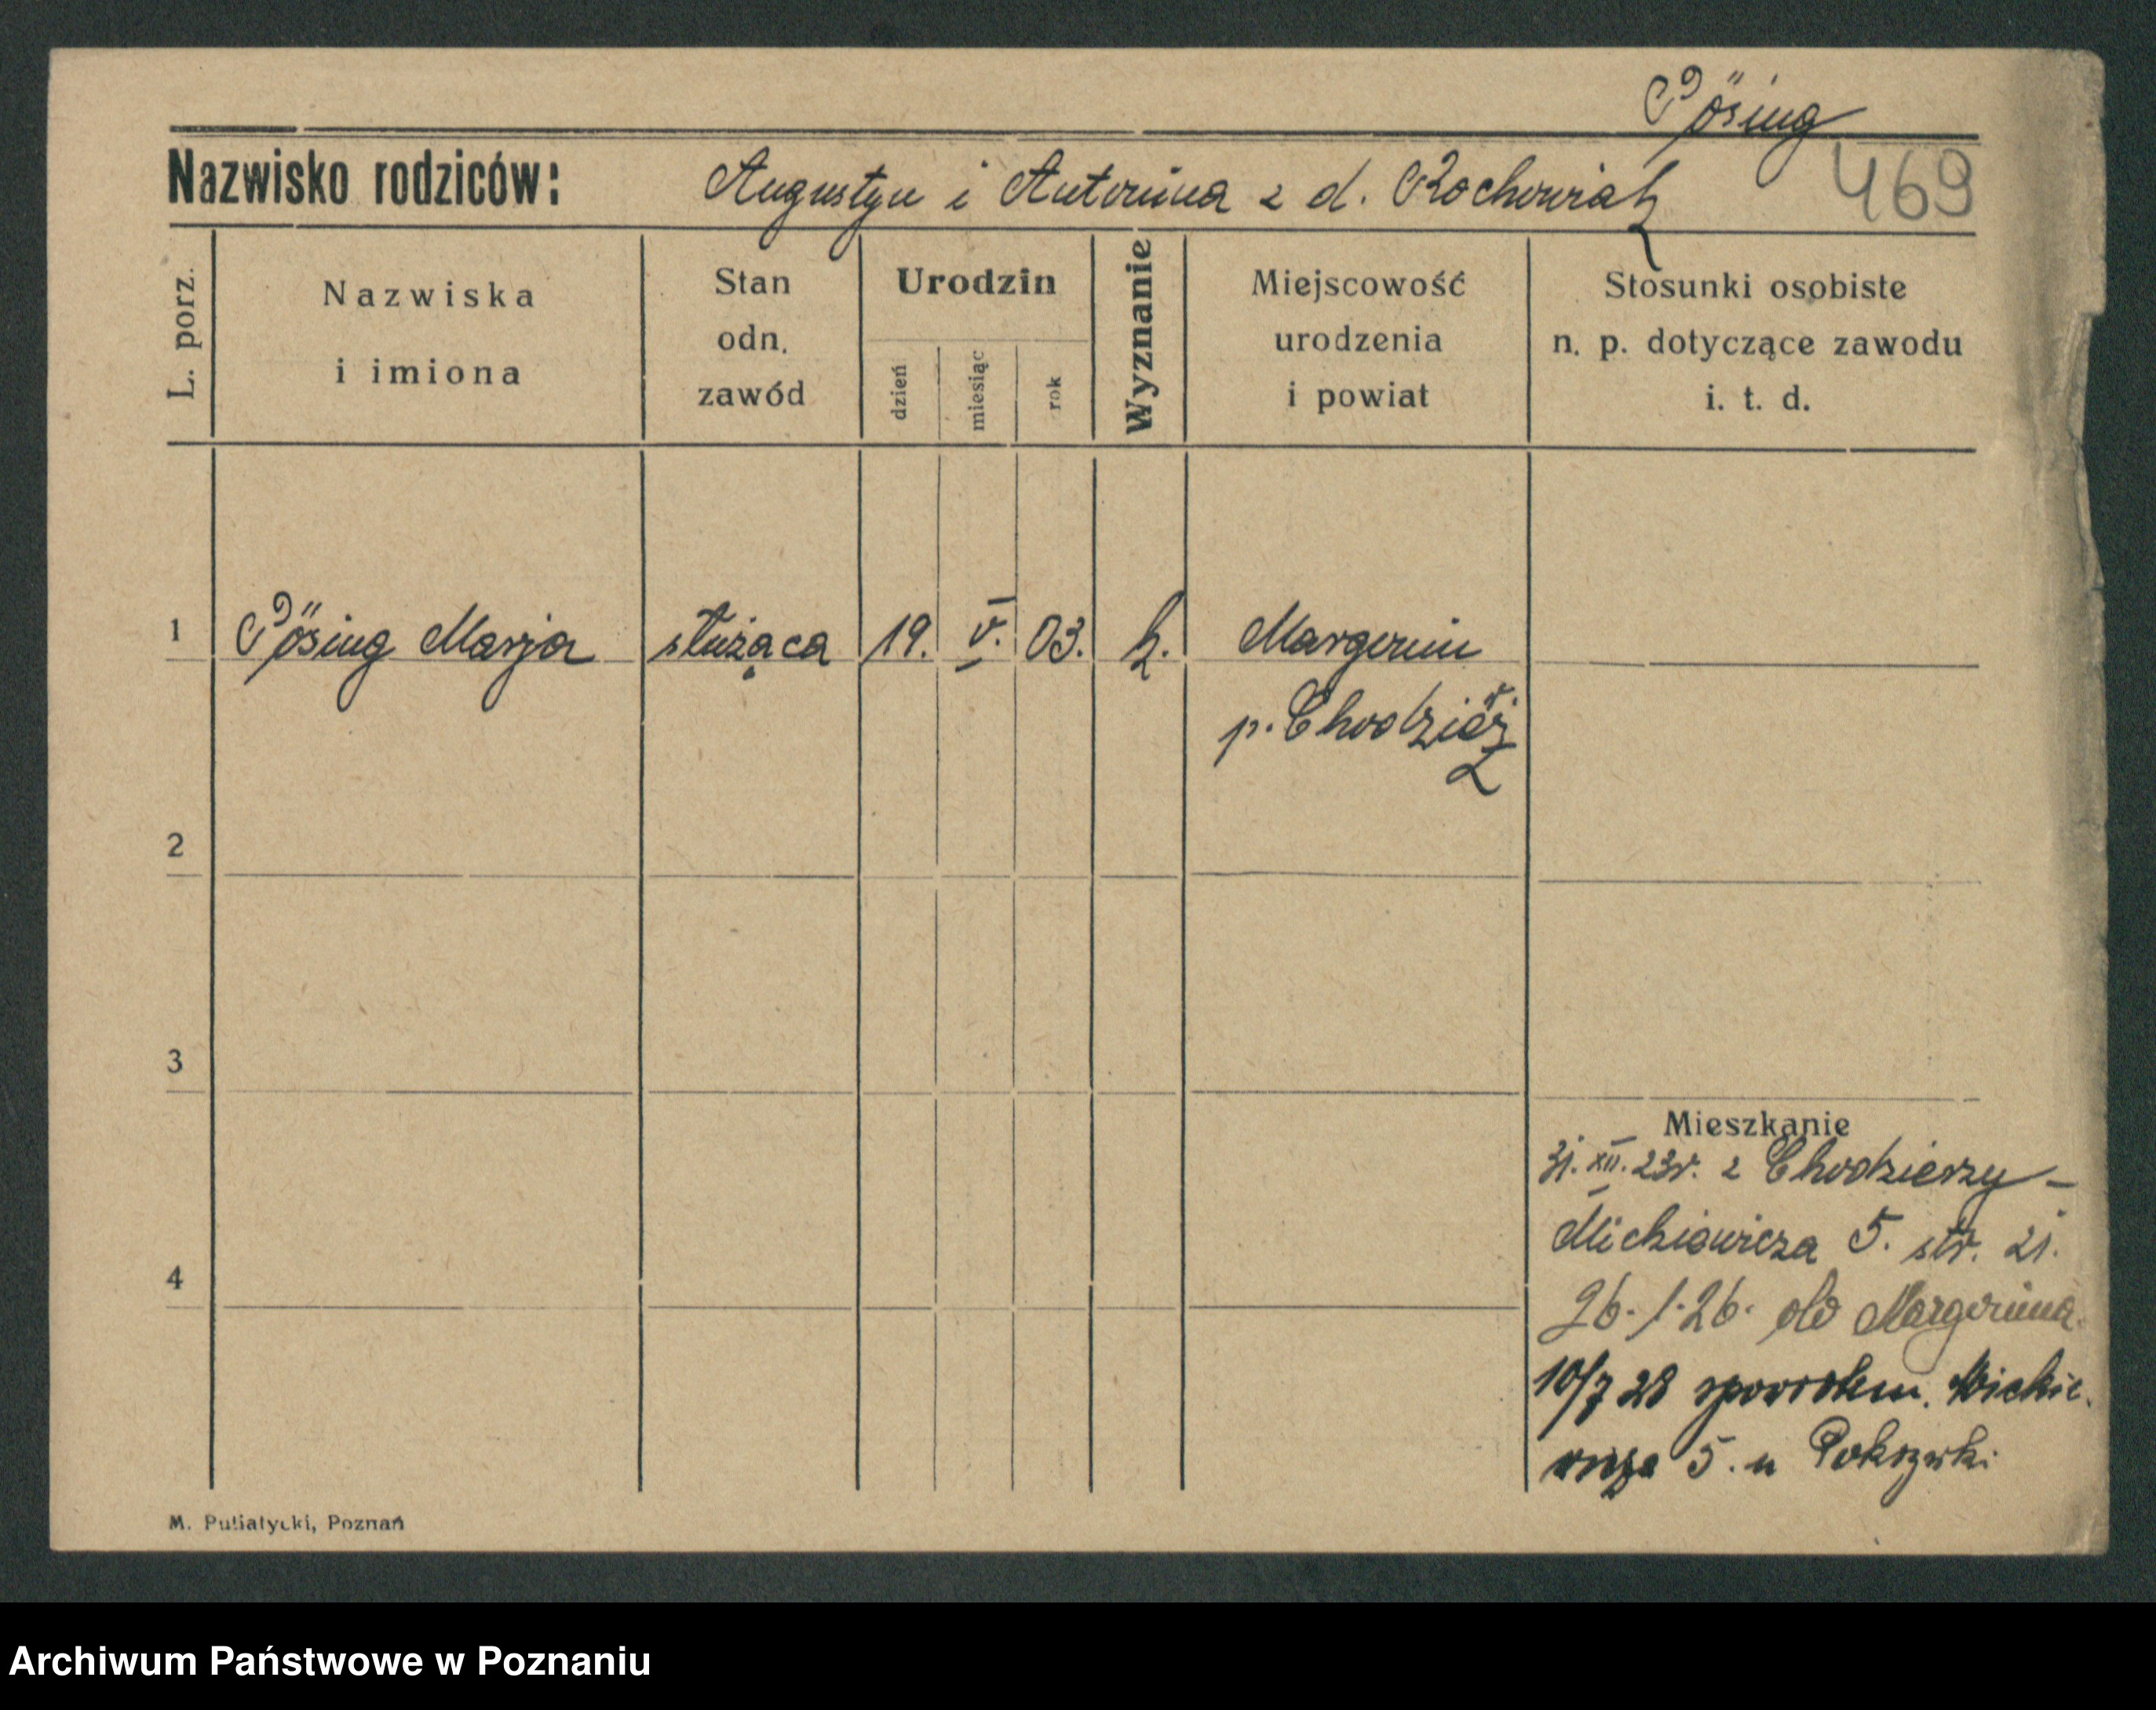 Pösing
Nazwisko rodziców: Augustyn i Antonina z d. Rochowiak 469
L. porz.
Nazwiska
i imiona
Stan
odn.
zawód
Urodzin
dzień
miesiąc
rok
Wyznanie
Miejscowość
urodzenia
i powiat
Stosunki osobiste
n. p. dotyczące zawodu
i. t. d.
1 Pösing Marja służąca 19. V. 03. k. Margonin
p. Chodzież
2
3
4
Mieszkanie
31. XII. 23r. z Chodzieży -
Mickiewicza 5. str. 21.
26. 1. 26. do Margonina.
10/7 28 spowrotem. Mickie-
wicza 5. u
M. Putiatycki, Poznań
Archiwum Państwowe w Poznaniu